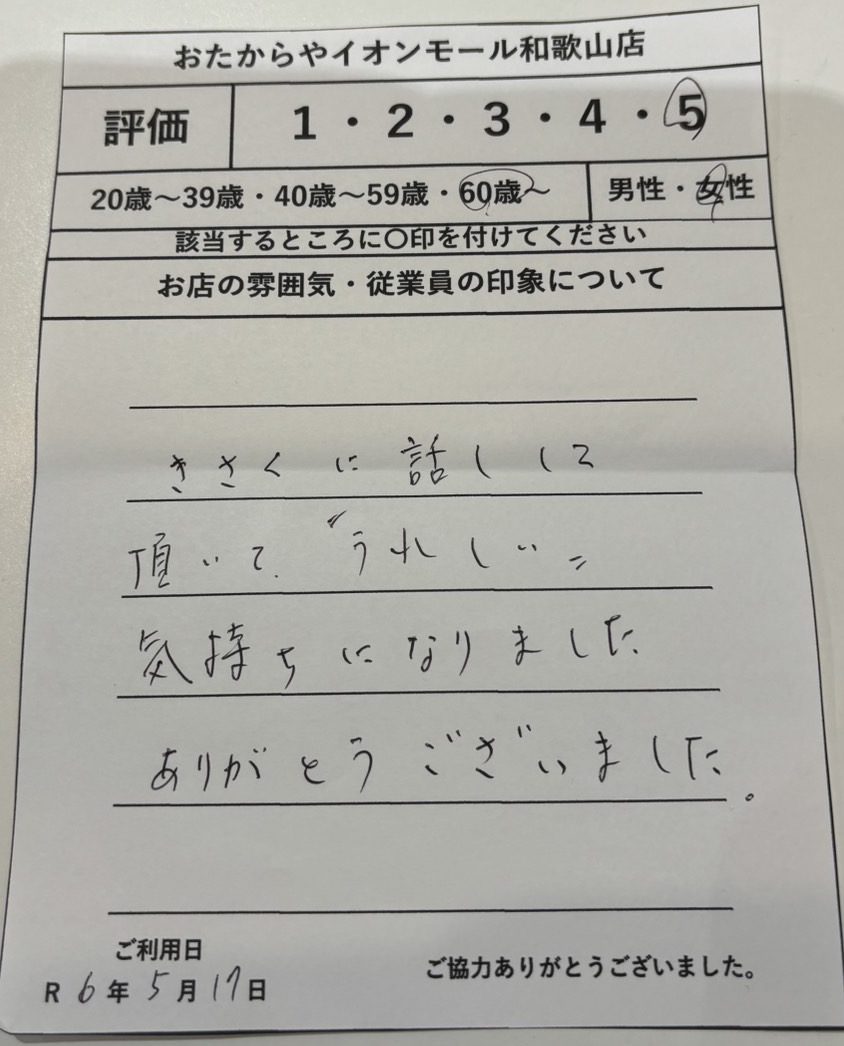 おたからやイオンモール和歌山店
評価 1・2・3・4・5
20歳〜39歳・40歳〜59歳・60歳〜 男性・女性
該当するところに〇印を付けてください
お店の雰囲気・従業員の印象について
きさくに話しして
頂いて〝うれしい〟
気持ちになりました
ありがとうございました。
ご利用日
R6年5月17日
ご協力ありがとうございました。